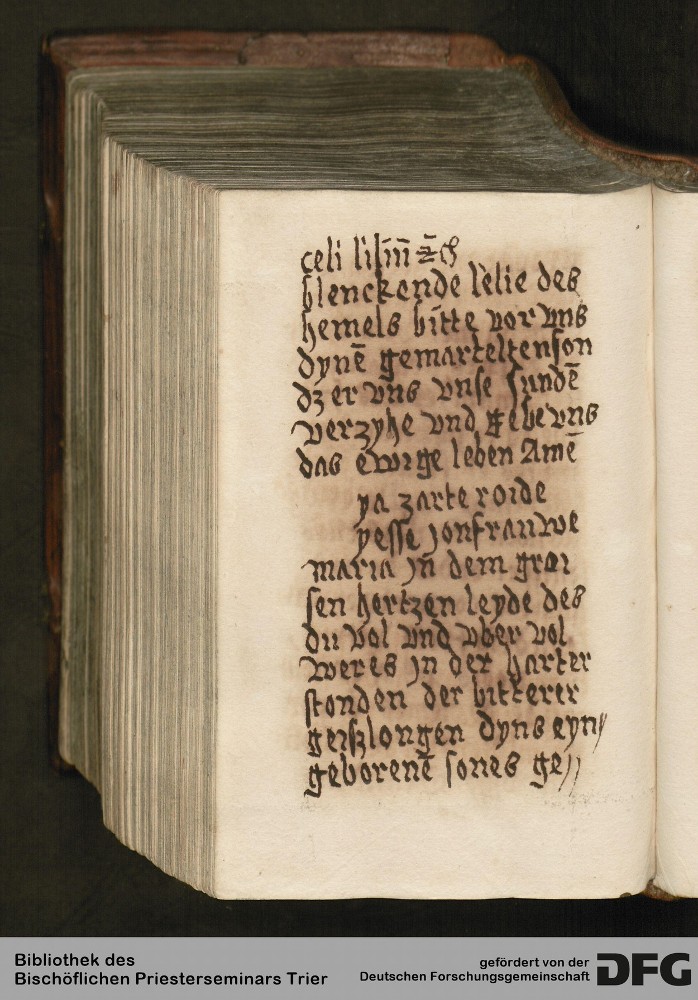 celi liliū
blenckende lelie des
hemels bitte vor vns
dynē gemarteltenson
dz er vns vnse sundē
verzyhe vnd gebe vns
das ewige leben Amē
ya zarte roide
yesse jonfrauwe
maria jn dem groi
sen hertzen leyde des
du vol vnd vber vol
weres jn der harter
stonden der bitterer
geiszlongen dyns eyn//
geborenē sones ge//
Bibliothek des
Bischöflichen Priesterseminars Trier
gefördert von der
Deutschen Forschungsgemeinschaft DFG